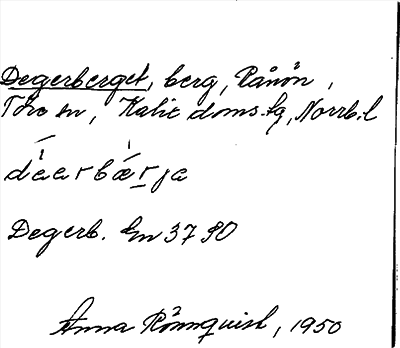 Degerberget, berg, Rånön,
Töre sn, Kalix doms.tg, Norrb.l
dèarbær̲ja
Degerb. Em 37 SO
Anna Rönnquist, 1950